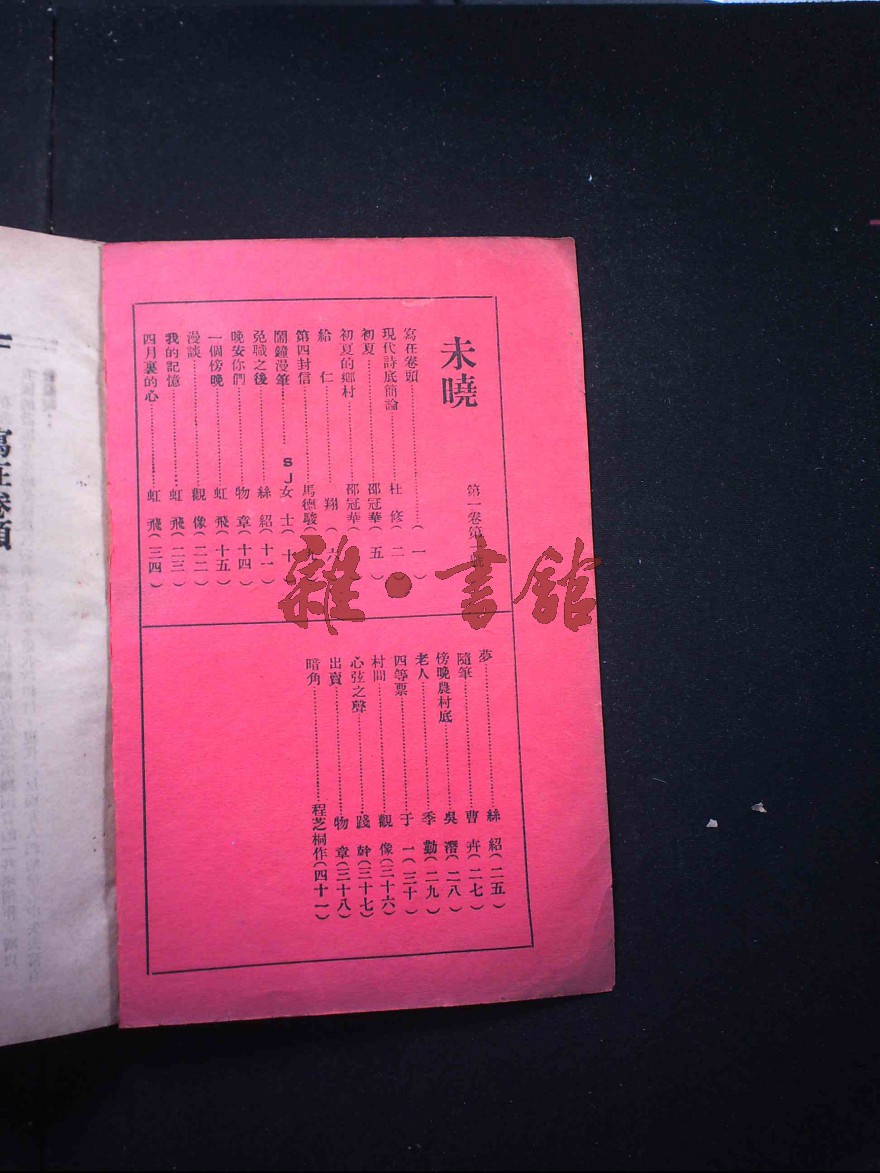 未曉
第一卷第一號
寫在卷頭……………………(一)
現代詩底簡論……………杜修(二)
初夏……………邵冠華(五)
初夏的鄉村……………邵冠華
給仁……………翔(六)
第四封信……………馬德駿(九)
鬧鐘漫筆……………SJ女士(十)
免職之後……………絲紹(十一)
晚安你們……………物章(十四)
一個傍晚……………虹飛(十五)
漫談……………觀像(二二)
我的記憶……………虹飛(二三)
四月裏的心……………虹飛(三四)
夢……………絲紹(二五)
隨筆……………曹齊(二七)
傍晚農村底……………吳潛(二八)
老人……………季勤(二九)
四等票……………于一(三十)
村間……………觀像(三十六)
心弦之聲……………踐幹(三十七)
出賣……………物章(三十八)
暗角……………程芝桐作(四十一)
雜·書館
寫在卷頭